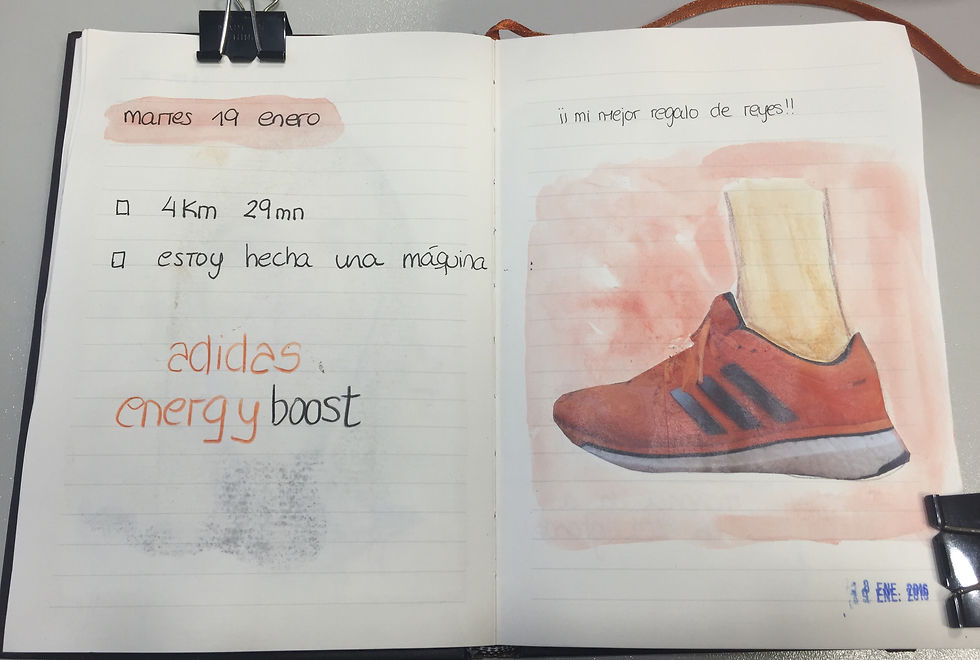 martes 19 enero
4Km 29mn
estoy hecha una máquina
adidas
energy boost
¡¡ mi mejor regalo de reyes!!
ENE. 2016